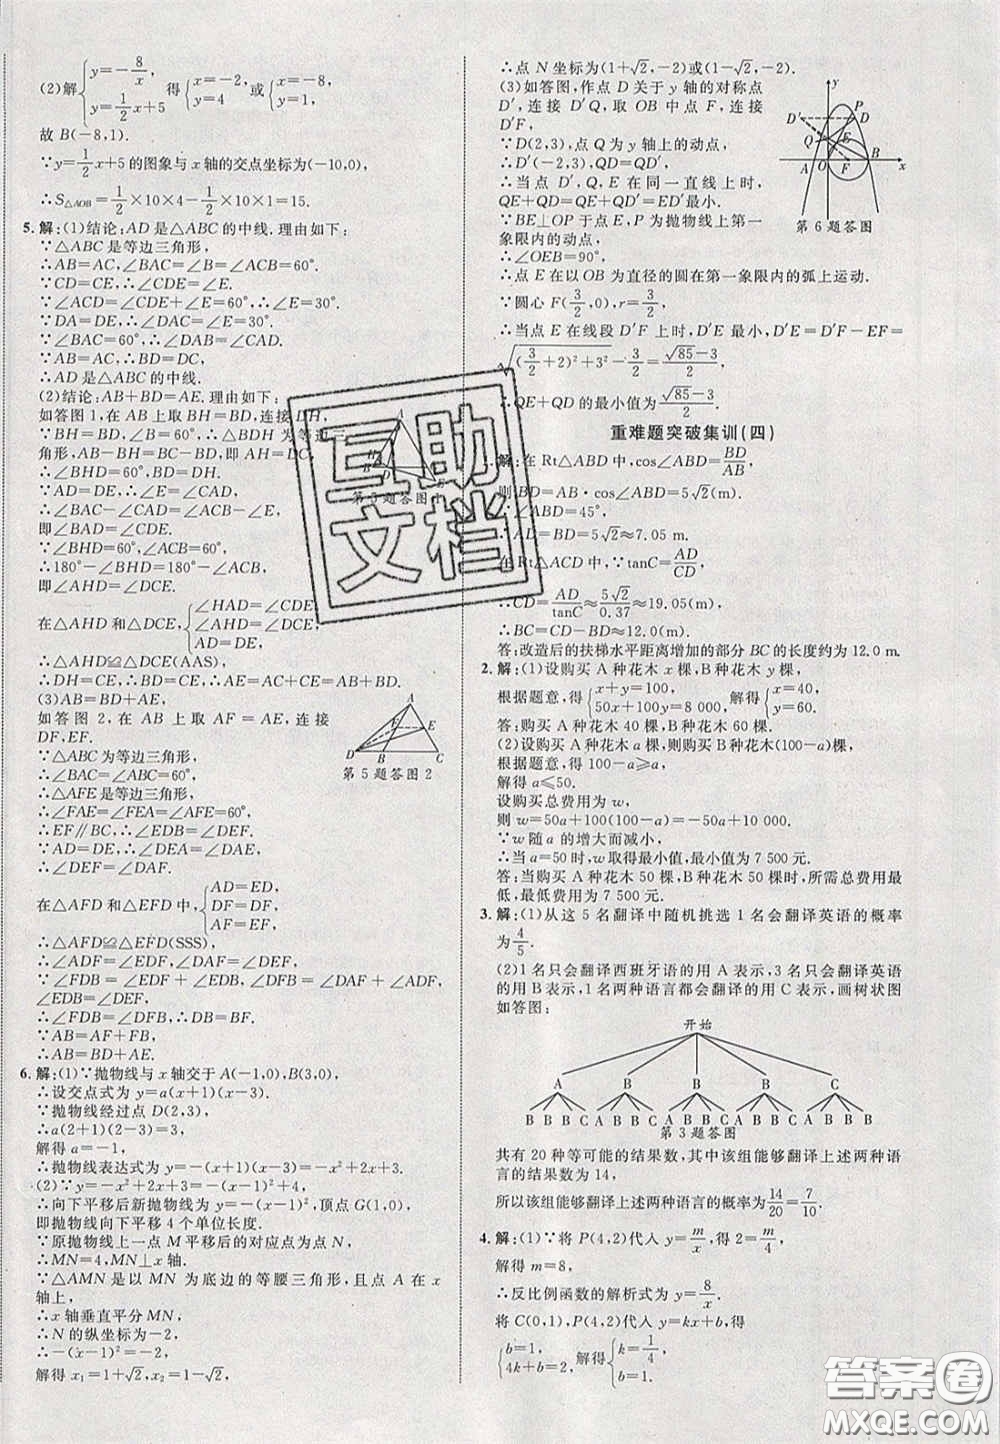 (2)解{y=-8/x, y=1/2x+5 得{x=-2, y=4 或{x=-8, y=1.
故 B(-8,1).
∵y=1/2x+5的图象与x轴的交点坐标为(-10,0),
∴S△AOB=1/2×10×4-1/2×10×1=15.
5. 解:(1)结论:AD是△ABC的中线.理由如下:
∵△ABC是等边三角形,
∴AB=AC,∠BAC=∠B=∠ACB=60°.
∵CD=CE,∴∠CDE=∠E.
∵∠ACD=∠CDE+∠E=60°,∴∠E=30°.
∵DA=DE,∴∠DAC=∠E=30°.
∵∠BAC=60°,∴∠DAB=∠CAD.
∵AB=AC,∴BD=DC,
∴AD是△ABC的中线.
(2)结论:AB+BD=AE.理由如下:
如答图1,在AB上取BH=BD,连接DH,
∵BH=BD,∠B=60°,∴△BDH为等边三
角形,AB-BH=BC-BD,
∴∠BHD=60°,BD=DH,AH=DC.
第5题答图1
∵AD=DE,∴∠E=∠CAD,
∴∠BAC-∠CAD=∠ACB-∠E,
即∠BAD=∠CDE.
∵∠BHD=60°,∠ACB=60°,
∴180°-∠BHD=180°-∠ACB,
即∠AHD=∠DCE.
在△AHD和△DCE,{∠HAD=∠CDE, ∠AHD=∠DCE, AD=DE,
∴△AHD≌△DCE(AAS),
∴DH=CE,∴BD=CE,∴AE=AC+CE=AB+BD.
(3)AB=BD+AE,
如答图2,在AB上取AF=AE,连接
DF,EF.
∵△ABC为等边三角形,
∴∠BAC=∠ABC=60°,
第5题答图2
∴△AFE是等边三角形,
∴∠FAE=∠FEA=∠AFE=60°,
∴EF∥BC,∴∠EDB=∠DEF.
∵AD=DE,∴∠DEA=∠DAE,
∴∠DEF=∠DAF.
在△AFD和△EFD中,{AD=ED, DF=DF, AF=EF,
∴△AFD≌△EFD(SSS),
∴∠ADF=∠EDF,∠DAF=∠DEF,
∵∠FDB=∠EDF+∠EDB,∠DFB=∠DAF+∠ADF,
∠EDB=∠DEF,
∴∠FDB=∠DFB,∴DB=BF.
∵AB=AF+FB,
∴AB=BD+AE.
6. 解:(1)∵抛物线与x轴交于A(-1,0),B(3,0),
∴设交点式为y=a(x+1)(x-3).
∵抛物线经过点D(2,3),
∴a(2+1)(2-3)=3,
解得a=-1,
∴抛物线表达式为y=-(x+1)(x-3)=-x²+2x+3.
(2)∵y=-(x+1)(x-3)=-(x-1)²+4,
∴向下平移后新抛物线为y=-(x-1)²,顶点G(1,0),
即抛物线向下平移4个单位长度.
∵原抛物线上一点M平移后的对应点为点N,
∴MN=4,MN⊥x轴.
∵△AMN是以MN为底边的等腰三角形,且点A在x
轴上,
∴x轴垂直平分MN,
∴N的纵坐标为-2,
∴-(x-1)²=-2,
解得x₁=1+√2,x₂=1-√2,
∴点N坐标为(1+√2,-2)或(1-√2,-2).
(3)如答图,作点D关于y轴的对称点
D′,连接D′Q,取OB中点F,连接
D′F.
∵D(2,3),Q为y轴上的动点,
∴D′(-2,3),QD=QD′,
∴当点D′,Q,E在同一直线上时,
QE+QD=QE+QD′=D′E.
∵BE⊥OP于点E,P为抛物线上第一
象限内的动点,
第6题答图
∴∠OEB=90°,
∴点E在以OB为直径的圆在第一象限内的弧上运动.
∵圆心F(3/2,0),r=3/2,
∴当点E在线段D′F上时,D′E最小,D′E=D′F-EF=
√((3/2+2)²+3²)-3/2=√85/2-3/2=(√85-3)/2,
∴QE+QD的最小值为(√85-3)/2.
重难题突破集训(四)
1. 解:在Rt△ABD中,cos∠ABD=BD/AB,
则BD=AB·cos∠ABD=5√2(m).
∵∠ABD=45°,
∴AD=BD=5√2≈7.05 m.
在Rt△ACD中,∵tanC=AD/CD,
∴CD=AD/tanC≈5√2/0.37≈19.05(m),
∴BC=CD-BD≈12.0(m).
答:改造后的扶梯水平距离增加的部分BC的长度约为12.0 m.
2. 解:(1)设购买A种花木x棵,B种花木y棵,
根据题意,得{x+y=100, 50x+100y=8 000, 解得{x=40, y=60.
答:购买A种花木40棵,B种花木60棵.
(2)设购买A种花木a棵,则购买B种花木(100-a)棵.
根据题意,得100-a≥a,
解得a≤50.
设购买总费用为w,
则w=50a+100(100-a)=-50a+10000.
∵w随a的增大而减小,
∴当a=50时,w取得最小值,最小值为7 500元.
答:当购买A种花木50棵、B种花木50棵时,所需总费用最
低,最低费用为7 500元.
3. 解:(1)从这5名翻译中随机挑选1名会翻译英语的概率
为4/5.
(2)1名只会翻译西班牙语的用A表示,3名只会翻译英语
的用B表示,1名两种语言都会翻译的用C表示,画树状图
如答图:
开始
A B B B C
B B B C A B B C A B B C A B B C A B B B
第3题答图
共有20种等可能的结果数,其中该组能够翻译上述两种语
言的结果数为14,
所以该组能够翻译上述两种语言的概率为14/20=7/10.
4. 解:(1)∵将P(4,2)代入y=m/x,得2=m/4,
解得m=8,
∴反比例函数的解析式为y=8/x.
将C(0,1),P(4,2)代入y=kx+b,得
{b=1, 4k+b=2, 解得{k=1/4, b=1.
互助
文档
答案圈
MXQE.COM